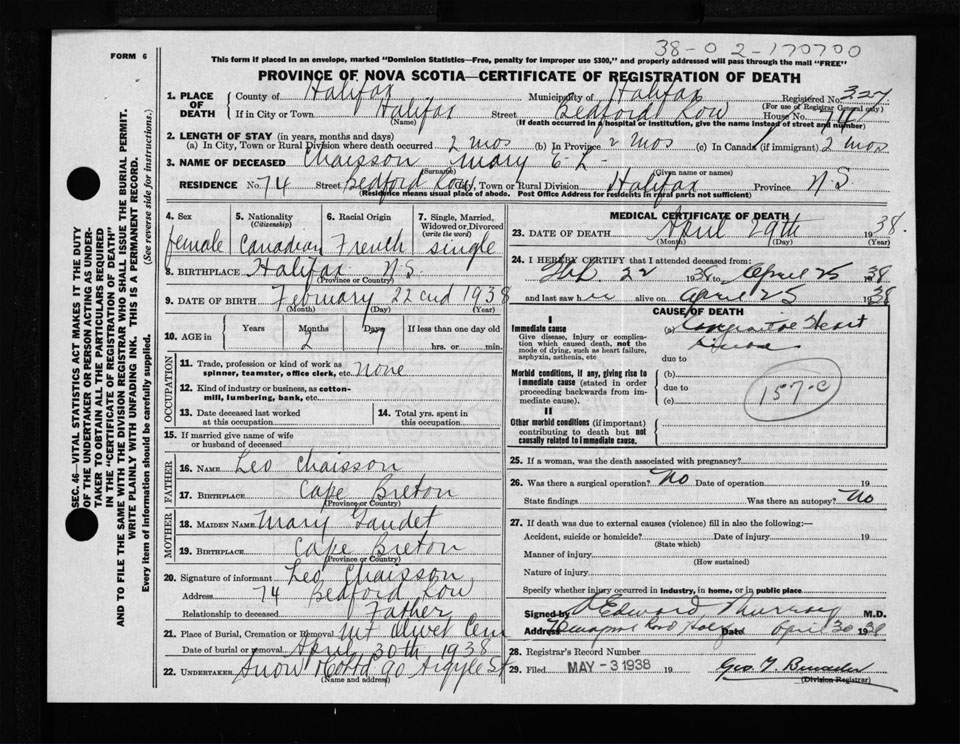 38-0 2-170700
FORM 6
This form if placed in an envelope, marked "Dominion Statistics—Free, penalty for improper use $300," and properly addressed will pass through the mail "FREE"
PROVINCE OF NOVA SCOTIA—CERTIFICATE OF REGISTRATION OF DEATH
1. PLACE OF DEATH County of Halifax Municipality of Halifax Registered No. 327
(For use of Registrar General only)
If in City or Town Halifax Street Bedford Row House No. 74
(Name) (If death occurred in a hospital or institution, give the name instead of street and number)
2. LENGTH OF STAY (in years, months and days)
(a) In City, Town or Rural Division where death occurred 2 mos (b) In Province 2 mos (c) In Canada (if immigrant) 2 mos
3. NAME OF DECEASED Chaisson Mary E. L.
(Surname) (Given name or names)
RESIDENCE No. 74 Street Bedford Row City, Town or Rural Division Halifax Province N S
(Residence means usual place of abode. Post Office Address for residents in rural parts not sufficient)
4. Sex female
5. Nationality (Citizenship) Canadian
6. Racial Origin French
7. Single, Married, Widowed or Divorced (write the word) single
8. BIRTHPLACE Halifax N S.
(Province or Country)
9. DATE OF BIRTH February 22nd 1938
(Month) (Day) (Year)
10. AGE in Years Months 2 Days 7 If less than one day old
hrs. or min.
OCCUPATION
11. Trade, profession or kind of work as spinner, teamster, office clerk, etc. none
12. Kind of industry or business, as cotton-mill, lumbering, bank, etc.
13. Date deceased last worked at this occupation
14. Total yrs. spent in this occupation
15. If married give name of wife or husband of deceased
FATHER
16. NAME Leo Chaisson
17. BIRTHPLACE Cape Breton
(Province or Country)
MOTHER
18. MAIDEN NAME Mary Gaudet
19. BIRTHPLACE Cape Breton
(Province or Country)
20. Signature of informant Leo Chaisson
Address 74 Bedford Row
Relationship to deceased Father
21. Place of Burial, Cremation or Removal Mt Olivet Cem
Date of burial or removal April 30th 1938
22. UNDERTAKER Snow & Co Ltd 90 Argyle St
(Name and address)
MEDICAL CERTIFICATE OF DEATH
23. DATE OF DEATH April 29th 1938.
(Month) (Day) (Year)
24. I HEREBY CERTIFY that I attended deceased from:
Feb 22 1938 to April 25 1938
and last saw her alive on April 25 1938
CAUSE OF DEATH
I
Immediate cause
Give disease, injury or complication which caused death, not the mode of dying, such as heart failure, asphyxia, asthenia, etc
(a) Congenital Heart
Disease
due to
Morbid conditions, if any, giving rise to immediate cause (stated in order proceeding backwards from immediate cause).
(b)
due to
(c)
157-c
II
Other morbid conditions (if important) contributing to death but not causally related to immediate cause.
25. If a woman, was the death associated with pregnancy?
26. Was there a surgical operation? No Date of operation 19
State findings Was there an autopsy? No
27. If death was due to external causes (violence) fill in also the following:—
Accident, suicide or homicide? Date of injury 19
(State which)
Manner of injury
(How sustained)
Nature of injury
Specify whether injury occurred in industry, in home, or in public place
Signed by Edward Murray M.D.
Address Date April 30 1938
28. Registrar's Record Number
29. Filed MAY -3 1938 19
(Division Registrar)
SEC. 46—VITAL STATISTICS ACT MAKES IT THE DUTY
OF THE UNDERTAKER OR PERSON ACTING AS UNDER-
TAKER TO OBTAIN ALL THE PARTICULARS REQUIRED
IN THE "CERTIFICATE OF REGISTRATION OF DEATH"
AND TO FILE THE SAME WITH THE DIVISION REGISTRAR WHO SHALL ISSUE THE BURIAL PERMIT.
WRITE PLAINLY WITH UNFADING INK. THIS IS A PERMANENT RECORD.
Every item of information should be carefully supplied. (See reverse side for instructions.)